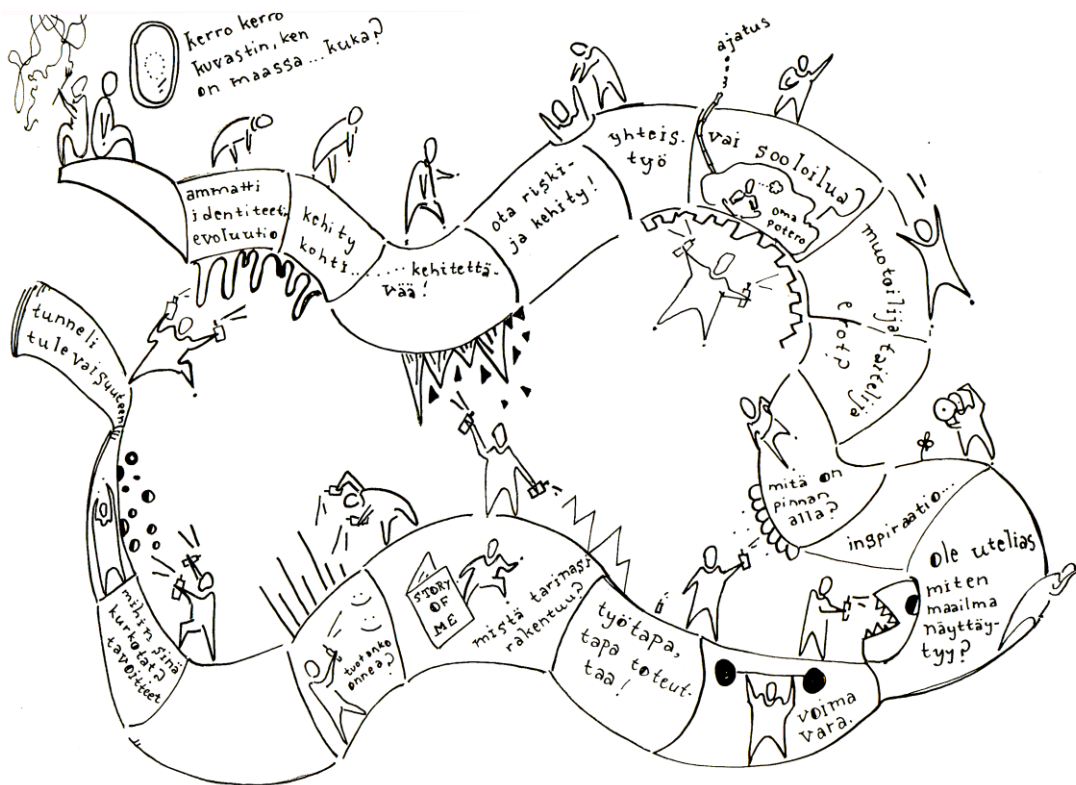 kerro kerro
kuvastin, ken
on maassa... kuka?
ammatti
identiteet.
evoluutio
kehity
kohti........ kehitettä-
vää!
ota riski-
ja kehity!
yhteis-
työ
vai sooloilua?
ajatus
oma
potero
muotoilija...
taiteilija
erottp
mitä on
pinnan
alla?
inspiraatio...
ole utelias
miten
maailma
näyttäy-
tyy?
voima
vara.
työtapa,
tapa toteut-
taa!
mistä tarinasi
rakentuu?
STORY
OF
ME
tuotanko
onnea?
mihin sinä
kurkotat?
tavoitteet
tunneli
tulevaisuuteen